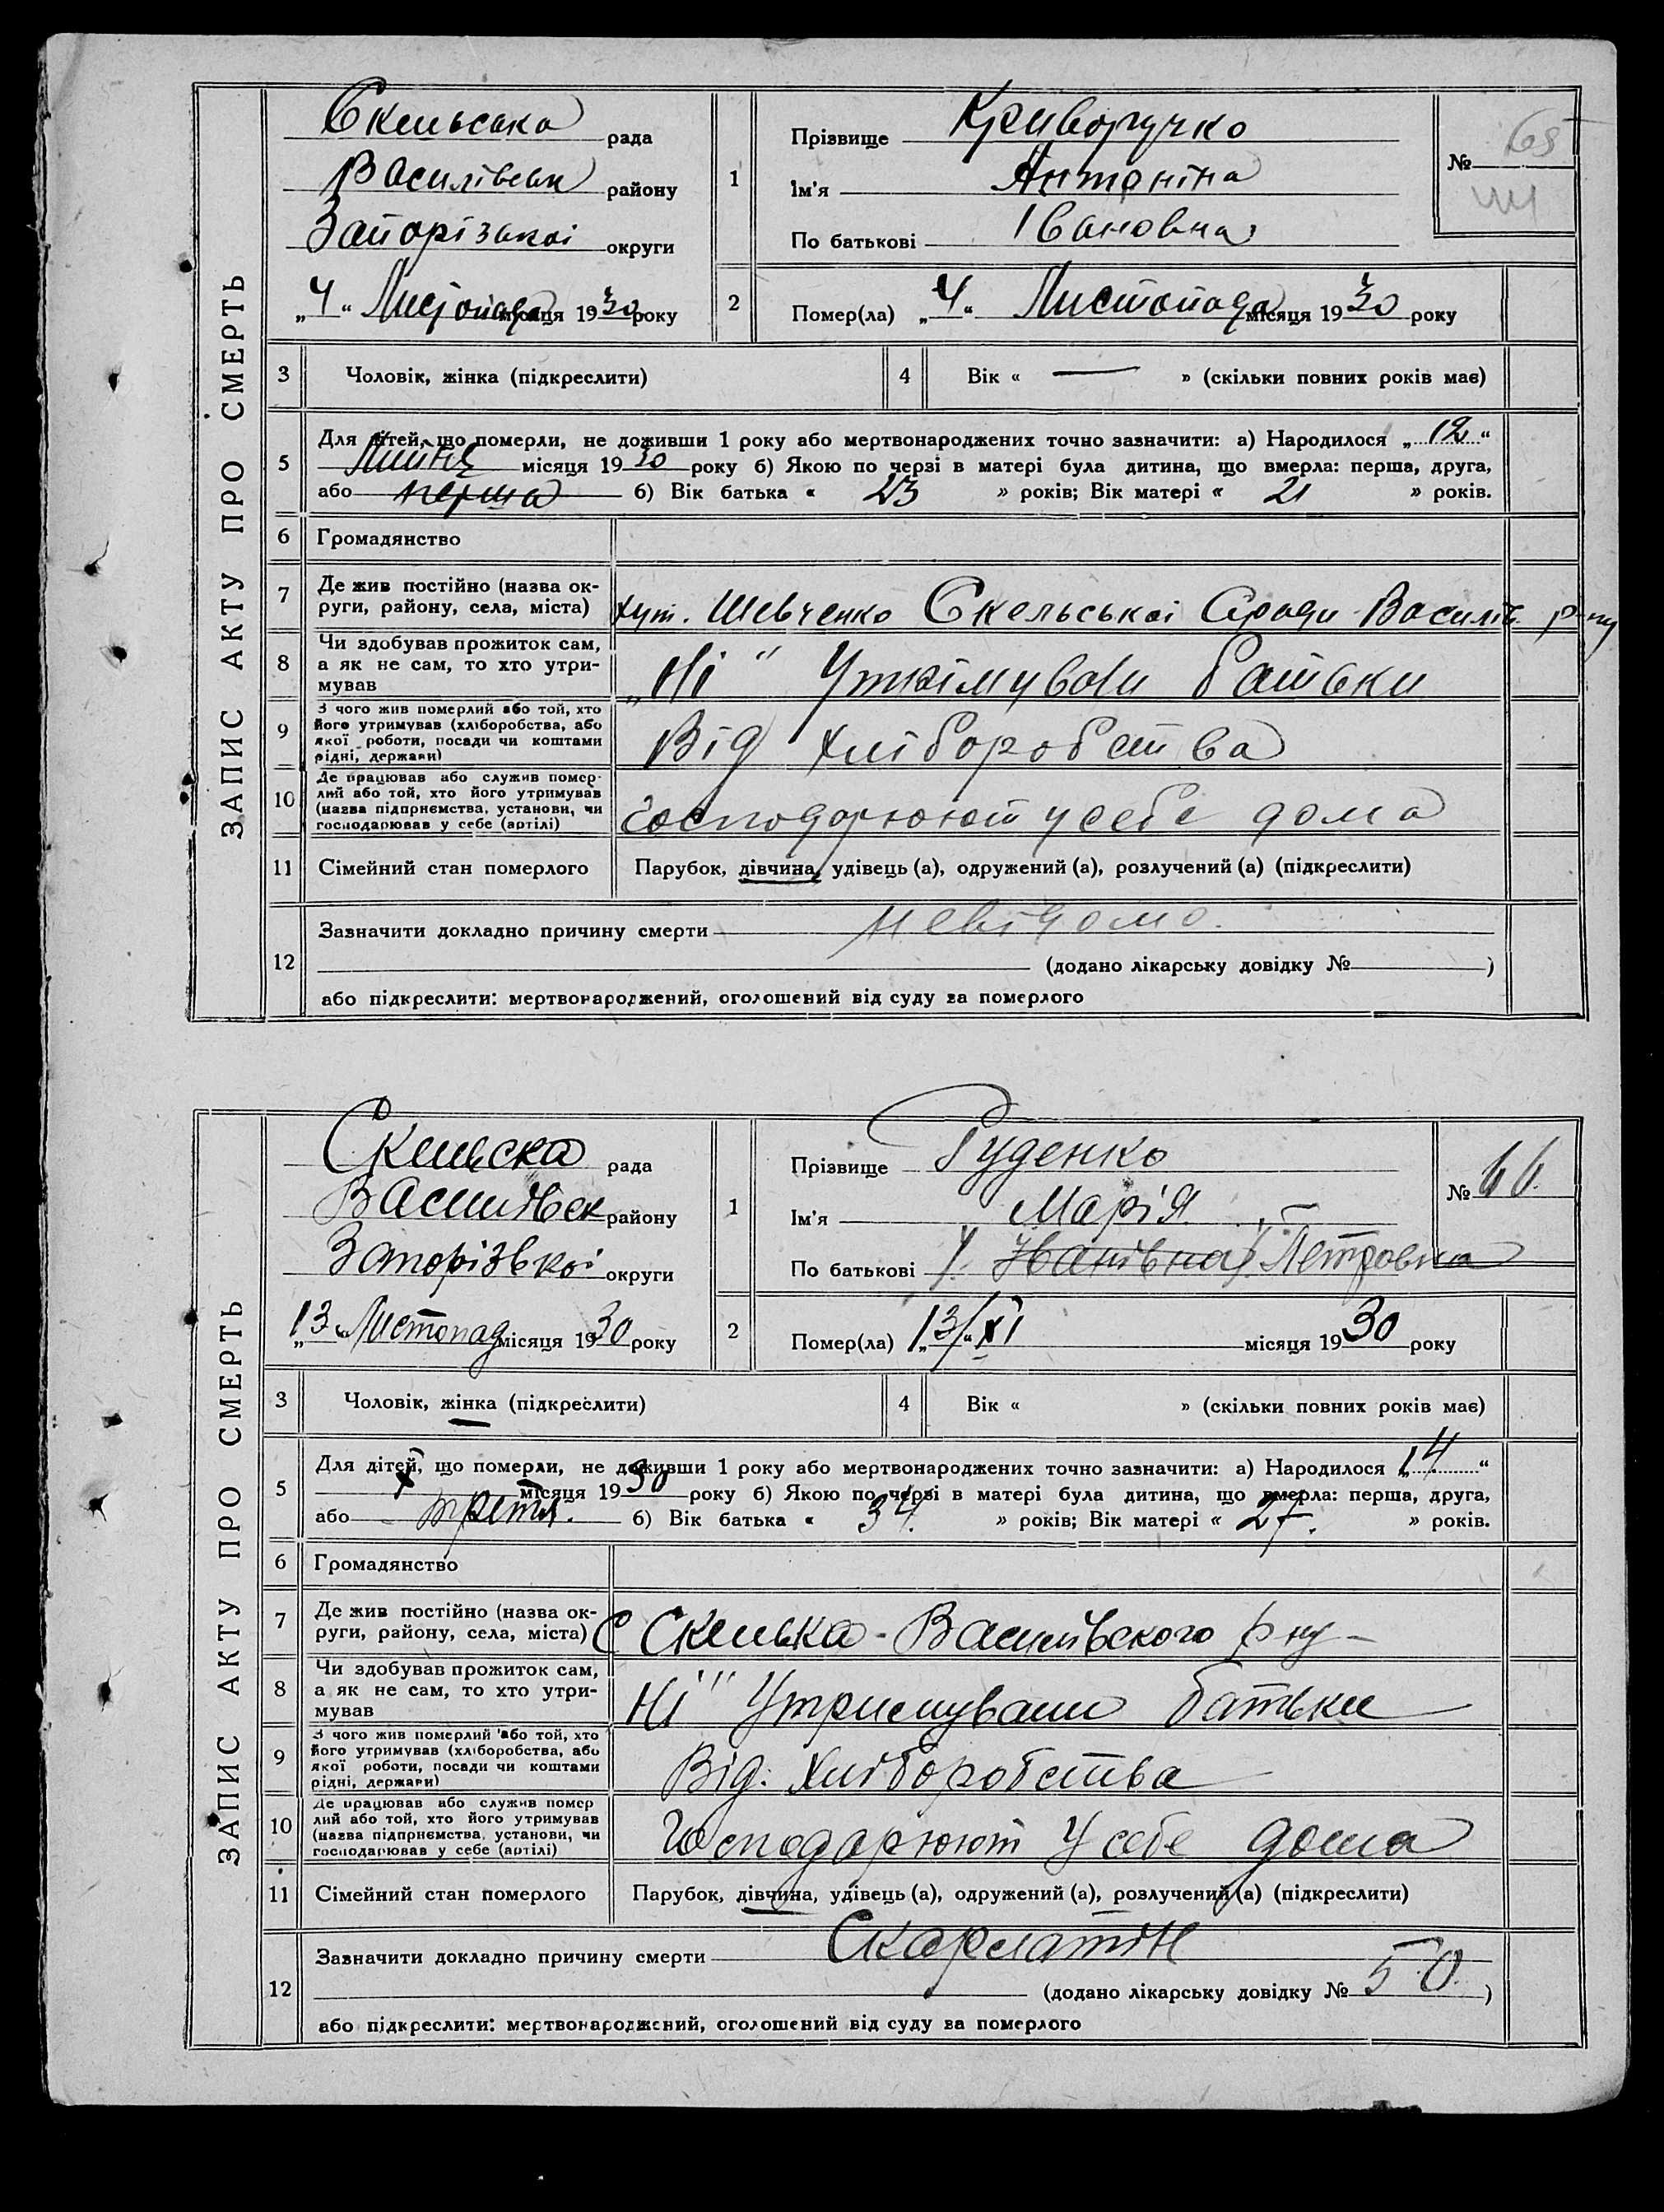 ЗАПИС АКТУ ПРО СМЕРТЬ
Скельська рада
Василівськ району
Запорізської округи
„4“ Листопада місяця 1930 року
1
Прізвище Криворучко
Ім'я Антоніна
По батькові Івановна
№ 65
2
Помер(ла) „4“ Листопада місяця 1930 року
3 Чоловік, жінка (підкреслити)
4 Вік « — » (скільки повних років має)
5 Для дітей, що померли, не доживши 1 року або мертвонароджених точно зазначити: а) Народилося „12“
Липня місяця 1930 року б) Якою по черзі в матері була дитина, що вмерла: перша, друга,
або перша б) Вік батька « 23 » років; Вік матері « 21 » років.
6 Громадянство
7 Де жив постійно (назва округи, району, села, міста) хут. Шевченко Скельської Сради Василів. р-ну
8 Чи здобував прожиток сам,
а як не сам, то хто утри-
мував
„Ні“ Утрімували батьки
9 З чого жив померлий або той, хто
його утримував (хліборобства, або
якої роботи, посади чи коштами
рідні, держави)
Від хліборобства
10 Де працював або служив помер-
лий або той, хто його утримував
(назва підприємства, установи, чи
господарював у себе (артілі)
Господорюют у себе дома
11 Сімейний стан померлого
Парубок, дівчина, удівець (а), одружений (а), розлучений (а) (підкреслити)
12 Зазначити докладно причину смерти невідомо.
(додано лікарську довідку № )
або підкреслити: мертвонароджений, оголошений від суду за померлого
ЗАПИС АКТУ ПРО СМЕРТЬ
Скельска рада
Василівск району
Запорізької округи
„13“ Листопад місяця 1930 року
1
Прізвище Руденко
Ім'я Марія
По батькові Іванівна Петровна
№ 66.
2
Помер(ла) „13/“ XI місяця 1930 року
3 Чоловік, жінка (підкреслити)
4 Вік « » (скільки повних років має)
5 Для дітей, що померли, не доживши 1 року або мертвонароджених точно зазначити: а) Народилося „14“
X місяця 1930 року б) Якою по черзі в матері була дитина, що вмерла: перша, друга,
або третя. б) Вік батька « 34. » років; Вік матері « 27. » років.
6 Громадянство
7 Де жив постійно (назва ок-
руги, району, села, міста)
С Скелька - Василівского р ну -
8 Чи здобував прожиток сам,
а як не сам, то хто утри-
мував
Ні" Утримували батьки
9 З чого жив померлий або той, хто
його утримував (хліборобства, або
якої роботи, посади чи коштами
рідні, держави)
Від. Хліборобства
10 Де працював або служив помер
лий або той, хто його утримував
(назва підприємства, установи, чи
господарював у себе (артілі)
Господарюют у себе дома
11 Сімейний стан померлого
Парубок, дівчина, удівець (а), одружений (а), розлучений (а) (підкреслити)
12 Зазначити докладно причину смерти Скарлатін
(додано лікарську довідку № 50. )
або підкреслити: мертвонароджений, оголошений від суду за померлого